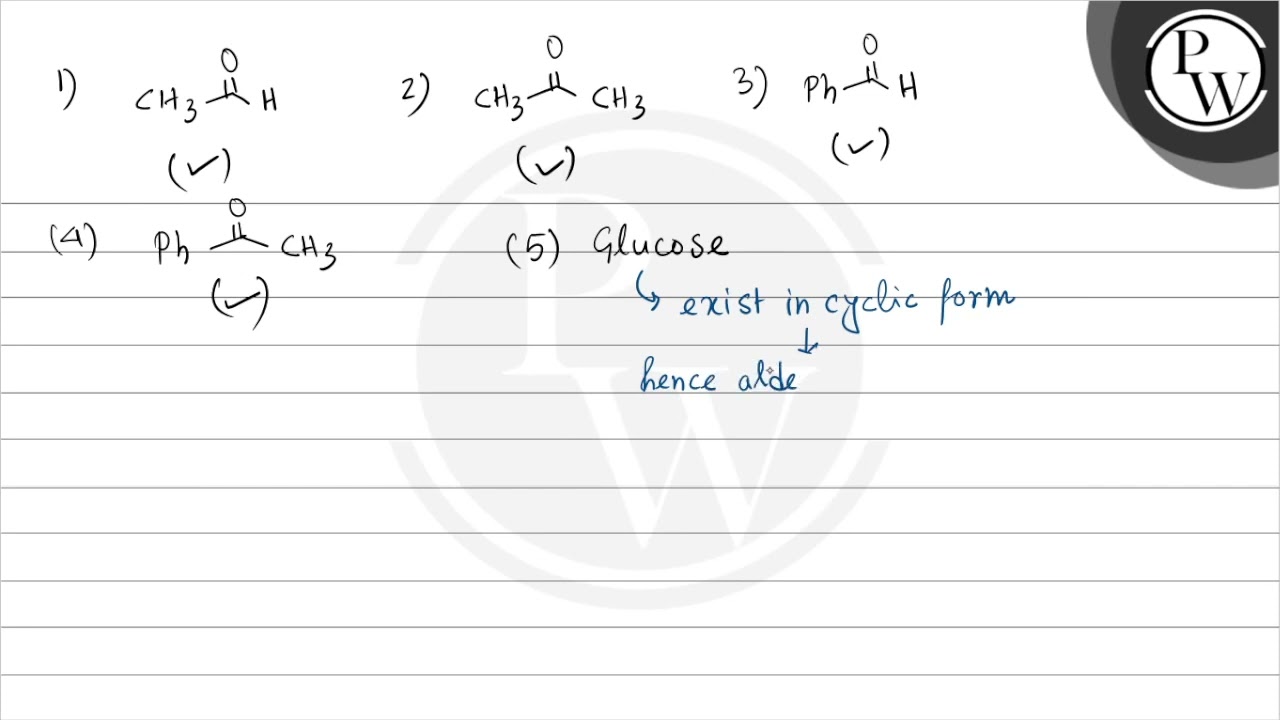 1) CH3 O H 2) CH3 O CH3 3) Ph O H
(✓) (✓) (✓)
(4) Ph O CH3 (5) Glucose
(✓)
↳ exist in cyclic form
↓
hence alde
PW
PW